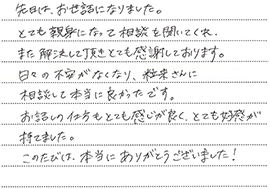 先日は、お世話になりました。
とても親身になって相談を聞いてくれ、
また解決して頂きとても感謝しております。
日々の不安がなくなり、椎来さんに
相談して本当に良かったです。
お話しの仕方もとても感じが良く、とても好感が
持てました。
このたびは、本当にありがとうございました!